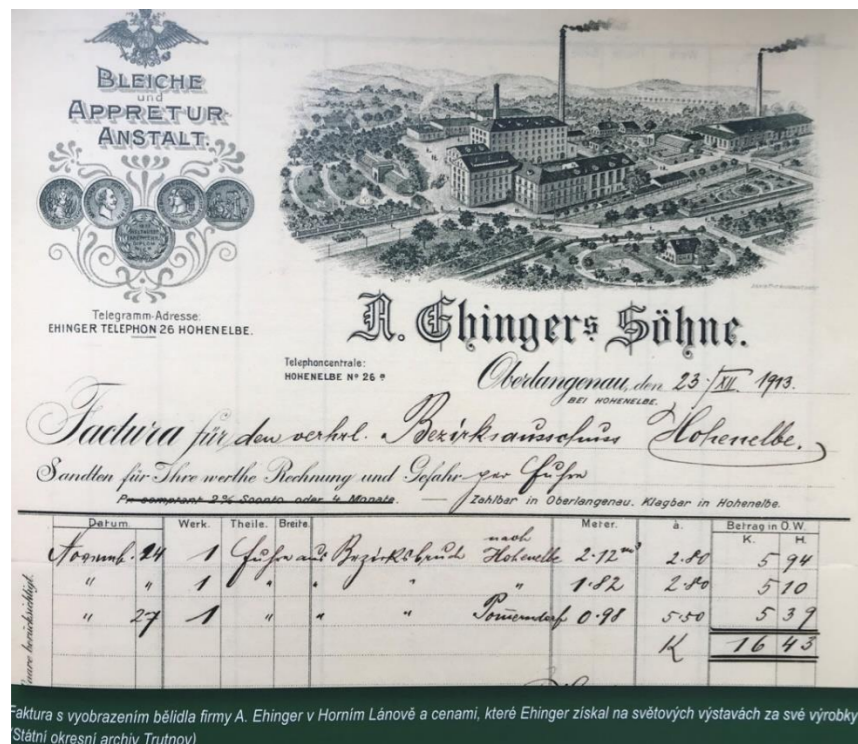 BLEICHE
und
APPRETUR-
ANSTALT.
Telegramm-Adresse:
EHINGER TELEPHON 26 HOHENELBE.
A. Ehingers Söhne.
Telephoncentrale:
HOHENELBE Nº 26
Oberlangenau, den 23./XII. 1913.
BEI HOHENELBE.
Factura für den verhrl. Bezirksausschuss Hohenelbe.
Sandten für Ihre werthe Rechnung und Gefahr per Fuhre
Pr. comptant 2% Sconto oder 4 Monate. — Zahlbar in Oberlangenau. Klagbar in Hohenelbe.
Datum. Werk. Theile. Breite. Meter. à. Betrag in Ö.W.
K. H.
Novemb. 24 1 Fuhre aus Bezirksbruch nach Hohenelbe 2·12 m³ 2·80 5 94
" " 1 " " " " 1·82 2·80 5 10
" 27 1 " " " Pomerndorf 0·98 5·50 5 39
K 16 43
berücksichtigt.
Faktura s vyobrazením bělidla firmy A. Ehinger v Horním Lánově a cenami, které Ehinger získal na světových výstavách za své výrobky
(Státní okresní archiv Trutnov)